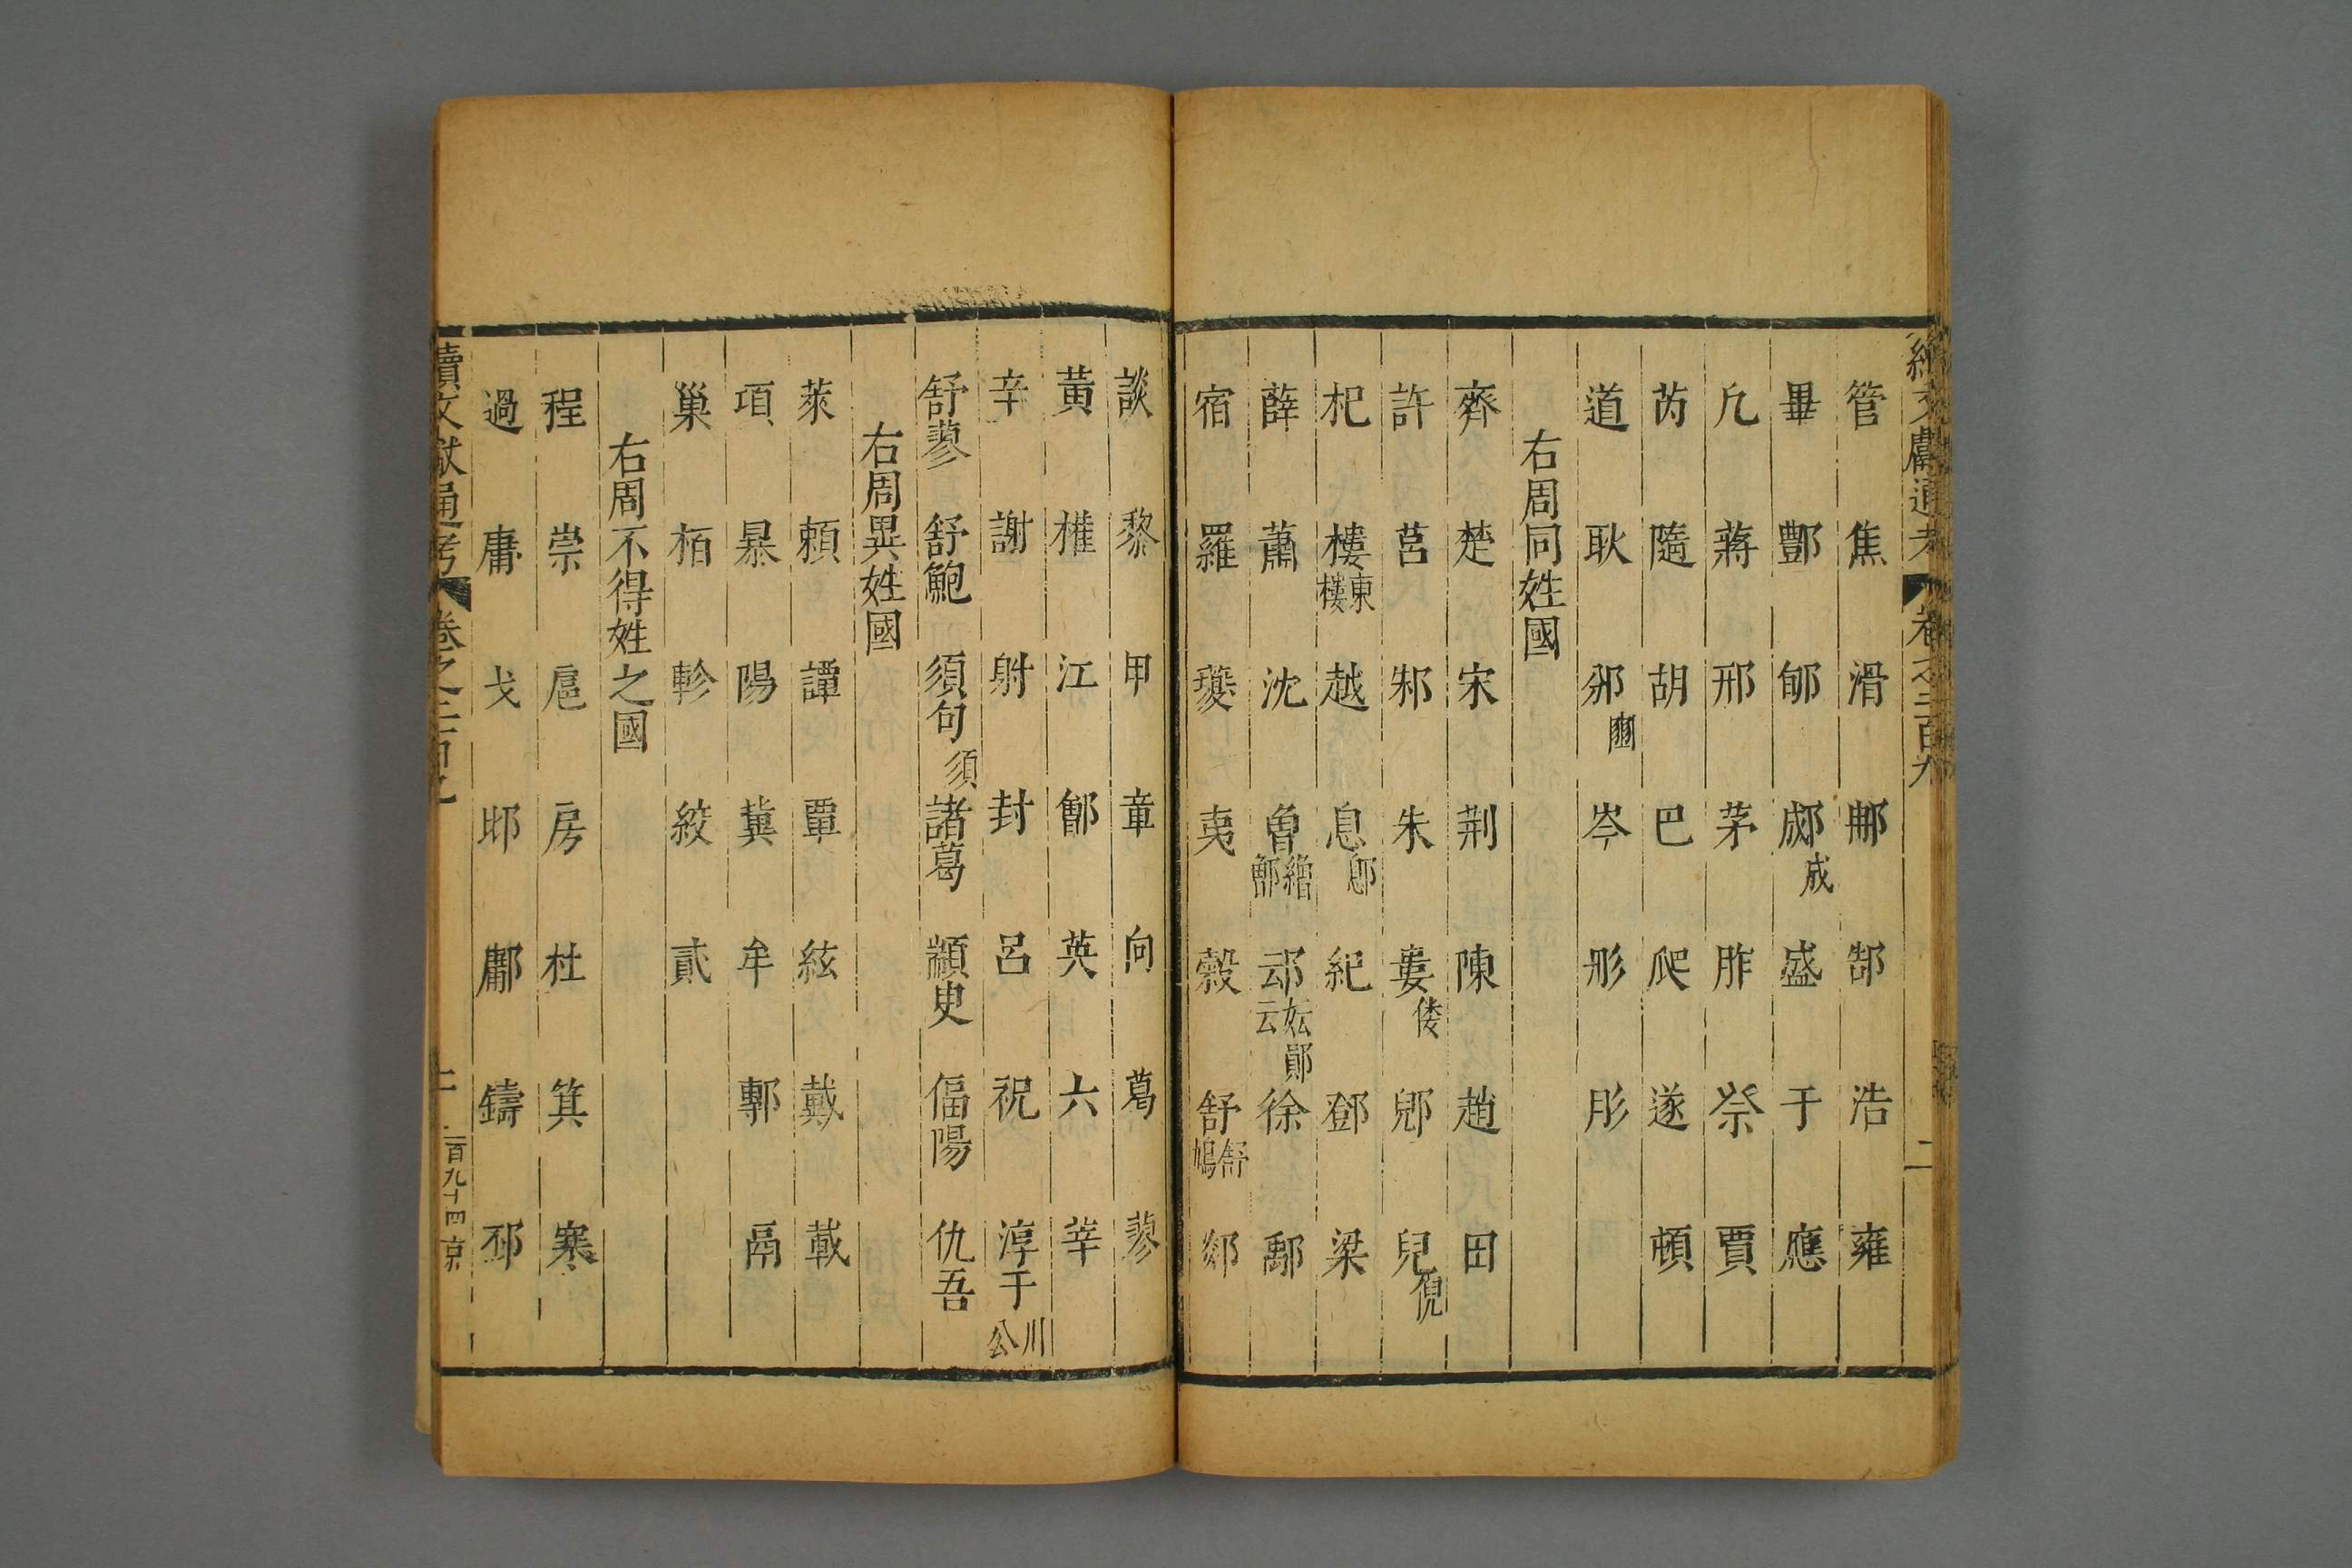 管 焦 滑 郍 郜 浩 雍
畢 酆 郇 郕 成 盛 于 應
凡 蔣 邢 茅 胙 祭 賈
芮 隨 胡 巴 爬 遂 頓
道 耿 邠 豳 岑 形 肜
右周同姓國
齊 楚 宋 荆 陳 趙 田
許 莒 邾 朱 婁 僂 郳 兒 倪
杞 樓 東樓 越 息 鄎 紀 鄧 梁
薛 蕭 沈 曾 繒鄫 䢵 妘云鄖 徐 鄅
宿 羅 夔 夷 榖 舒 舒鳩 郯
談 黎 甲 章 向 葛 蓼
黃 權 江 鄫 英 六 莘
辛 謝 射 封 呂 祝 淳于 州公
舒蓼 舒鮑 須句 須 諸葛 顓臾 偪陽 仇吾
右周異姓國
萊 賴 譚 覃 絃 戴 載
項 暴 陽 冀 牟 郭 鬲
巢 栢 軫 絞 貳
右周不得姓之國
程 崇 扈 房 杜 箕 寒
過 庸 戈 邶 鄘 鑄 邳
續文獻通考 卷之二百九
二
一百九十四 京